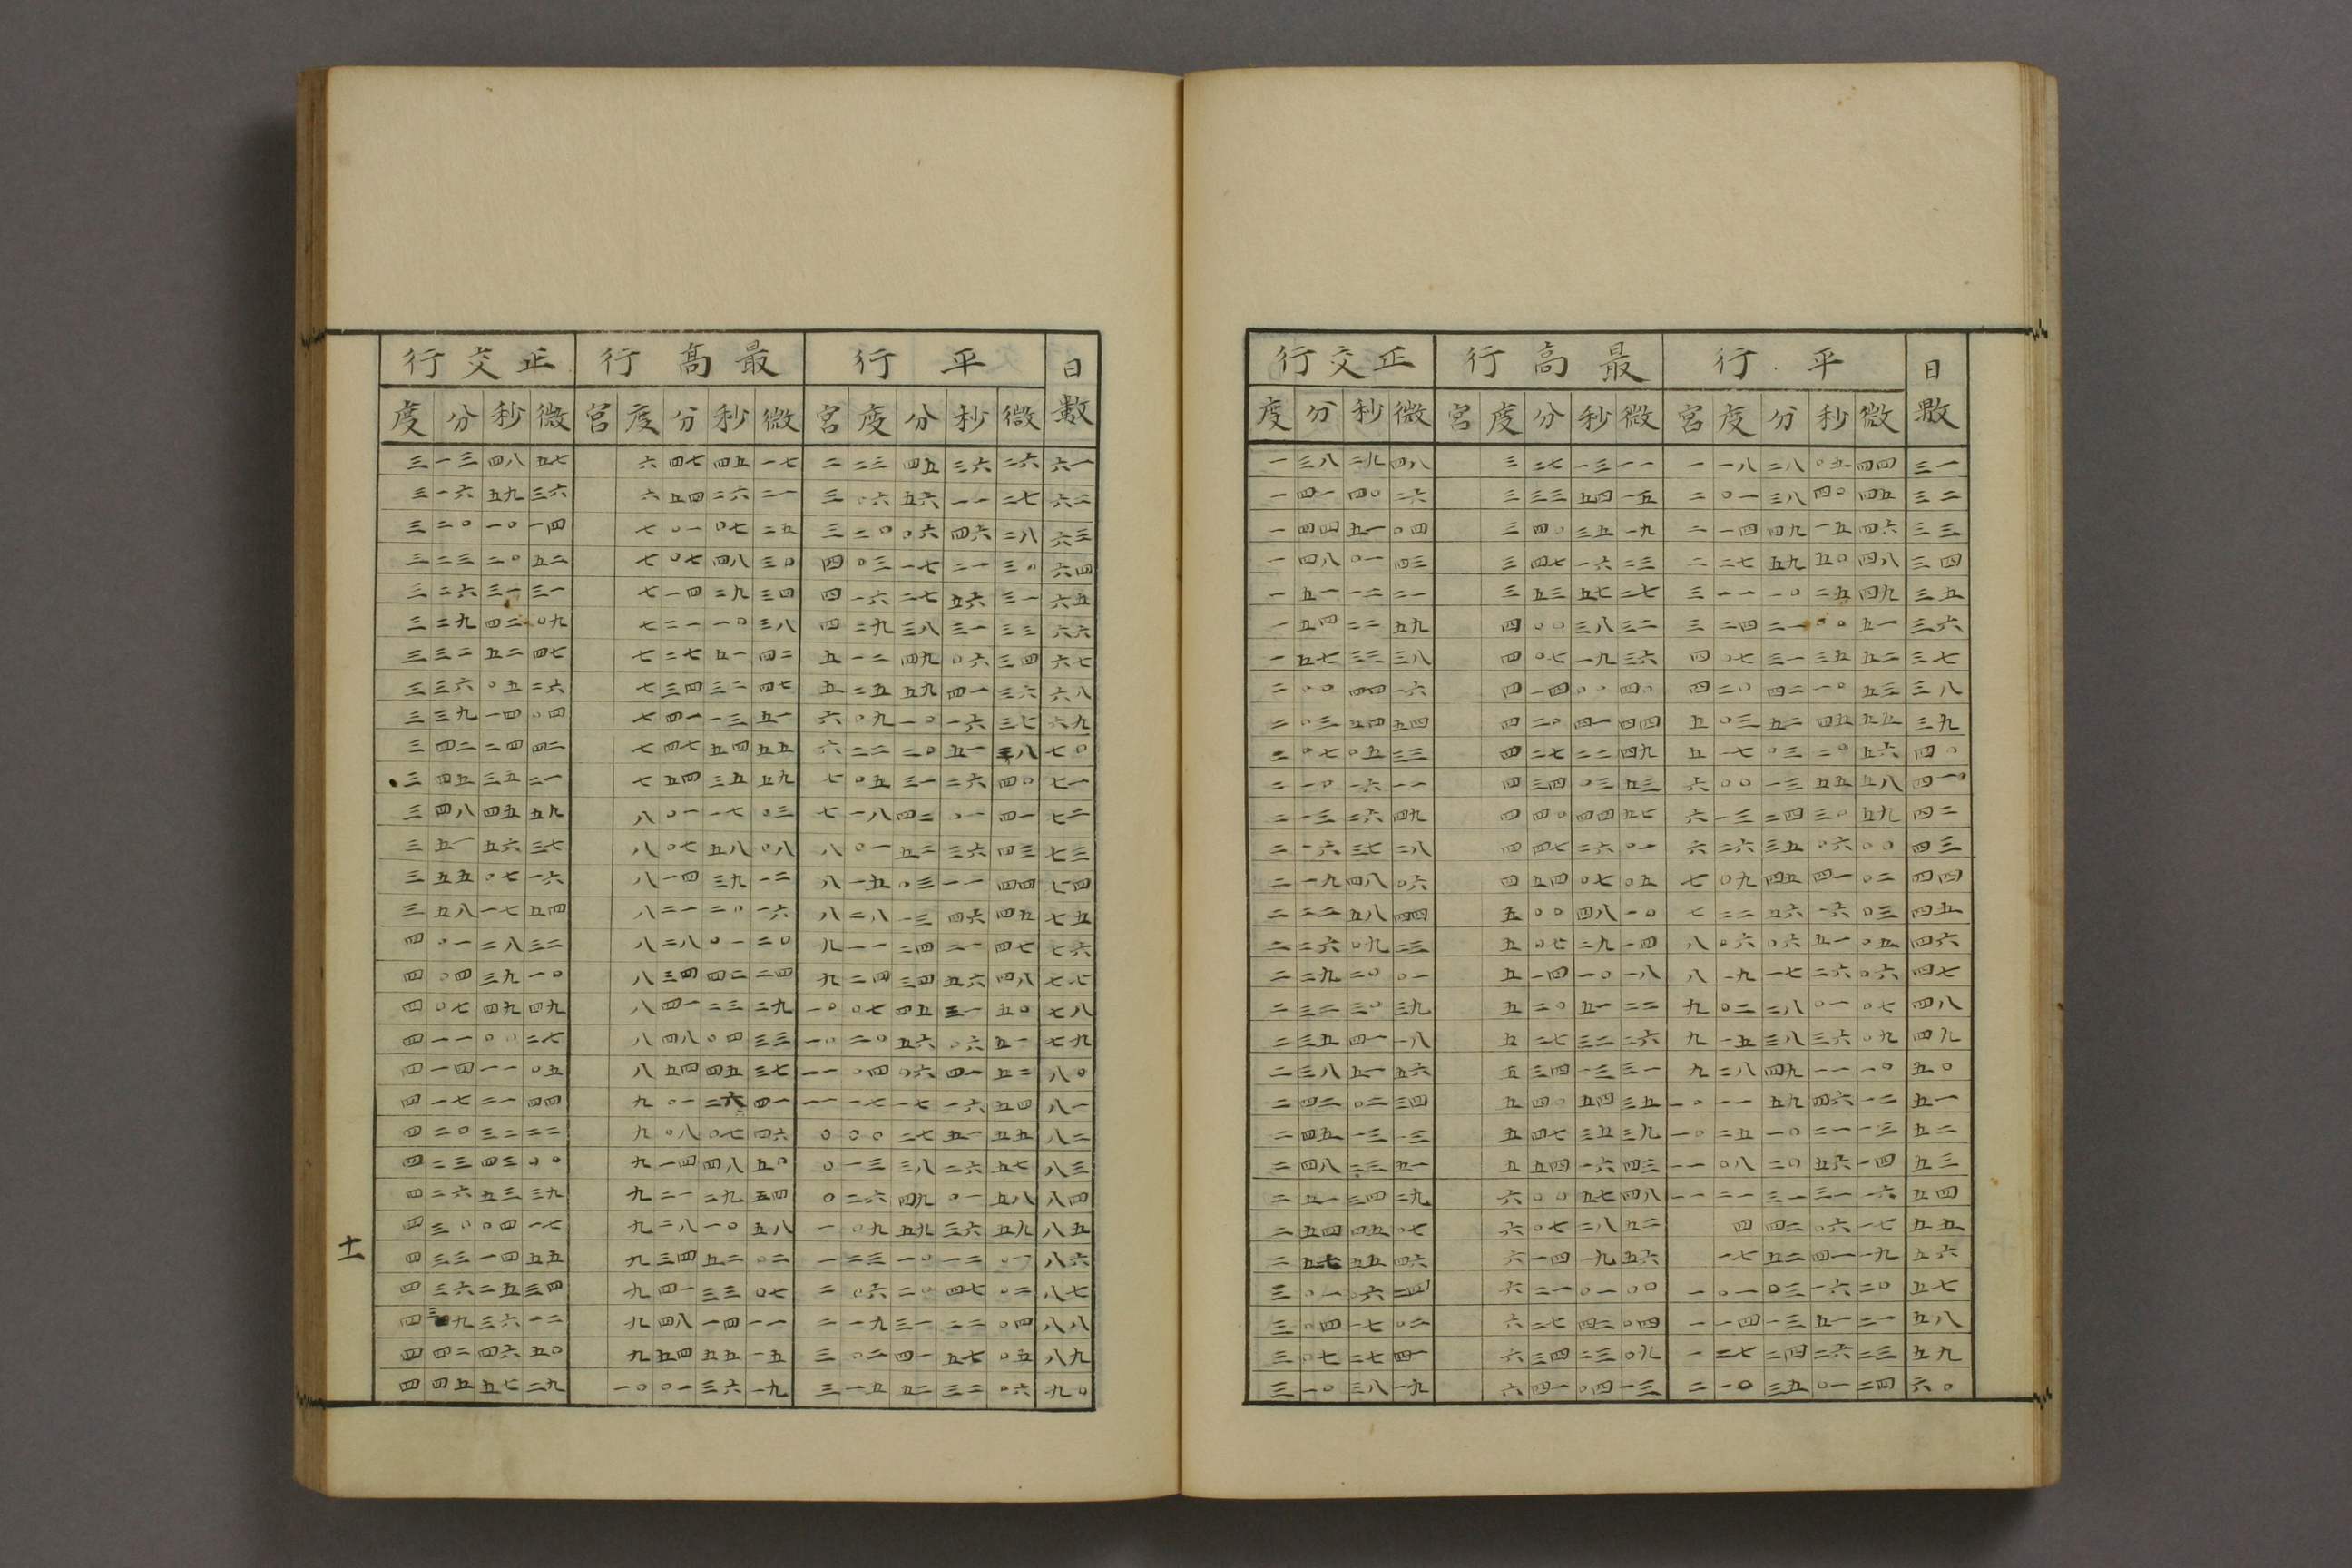 正交行 最高行 平行 日數
度 分 秒 微 宮 度 分 秒 微 宮 度 分 秒 微
一 三八 二九 四八 三 二七 一三 一一 一 一八 二八 〇五 四四 三一
一 四一 四〇 二六 三 三三 五四 一五 二 〇一 三八 四〇 四五 三二
一 四四 五一 〇四 三 四〇 三五 一九 二 一四 四九 一五 四六 三三
一 四八 〇一 四三 三 四七 一六 二三 二 二七 五九 五〇 四八 三四
一 五一 一二 二一 三 五三 五七 二七 三 一一 一〇 二五 四九 三五
一 五四 二二 五九 四 〇〇 三八 三二 三 二四 二一 〇〇 五一 三六
一 五七 三三 三八 四 〇七 一九 三六 四 〇七 三一 三五 五二 三七
二 〇〇 四四 一六 四 一四 〇〇 四〇 四 二〇 四二 一〇 五三 三八
二 〇三 五四 五四 四 二〇 四一 四四 五 〇三 五二 四五 五五 三九
二 〇七 〇五 三三 四 二七 二二 四九 五 一七 〇三 二〇 五六 四〇
二 一〇 一六 一一 四 三四 〇三 五三 六 〇〇 一三 五五 五八 四一
二 一三 二六 四九 四 四〇 四四 五七 六 一三 二四 三〇 五九 四二
二 一六 三七 二八 四 四七 二六 〇一 六 二六 三五 〇六 〇〇 四三
二 一九 四八 〇六 四 五四 〇七 〇五 七 〇九 四五 四一 〇二 四四
二 二二 五八 四四 五 〇〇 四八 一〇 七 二二 五六 一六 〇三 四五
二 二六 〇九 二三 五 〇七 二九 一四 八 〇六 〇六 五一 〇五 四六
二 二九 二〇 〇一 五 一四 一〇 一八 八 一九 一七 二六 〇六 四七
二 三二 三〇 三九 五 二〇 五一 二二 九 〇二 二八 〇一 〇七 四八
二 三五 四一 一八 五 二七 三二 二六 九 一五 三八 三六 〇九 四九
二 三八 五一 五六 五 三四 一三 三一 九 二八 四九 一一 一〇 五〇
二 四二 〇二 三四 五 四〇 五四 三五 一〇 一一 五九 四六 一二 五一
二 四五 一三 一三 五 四七 三五 三九 一〇 二五 一〇 二一 一三 五二
二 四八 二三 五一 五 五四 一六 四三 一一 〇八 二〇 五六 一四 五三
二 五一 三四 二九 六 〇〇 五七 四八 一一 二一 三一 三一 一六 五四
二 五四 四五 〇七 六 〇七 二八 五二 四 四二 〇六 一七 五五
二 五七 五五 四六 六 一四 一九 五六 一七 五二 四一 一九 五六
三 〇一 〇六 二四 六 二一 〇一 〇〇 一 〇一 〇三 一六 二〇 五七
三 〇四 一七 〇二 六 二七 四二 〇四 一 一四 一三 五一 二一 五八
三 〇七 二七 四一 六 三四 二三 〇九 一 二七 二四 二六 二三 五九
三 一〇 三八 一九 六 四一 〇四 一三 二 一〇 三五 〇一 二四 六〇
正交行 最高行 平行 日數
度 分 秒 微 宮 度 分 秒 微 宮 度 分 秒 微
三 一三 四八 五七 六 四七 四五 一七 二 二三 四五 三六 二六 六一
三 一六 五九 三六 六 五四 二六 二一 三 〇六 五六 一一 二七 六二
三 二〇 一〇 一四 七 〇一 〇七 二五 三 二〇 〇六 四六 二八 六三
三 二三 二〇 五二 七 〇七 四八 三〇 四 〇三 一七 二一 三〇 六四
三 二六 三一 三一 七 一四 二九 三四 四 一六 二七 五六 三一 六五
三 二九 四二 〇九 七 二一 一〇 三八 四 二九 三八 三一 三三 六六
三 三二 五二 四七 七 二七 五一 四二 五 一二 四九 〇六 三四 六七
三 三六 〇五 二六 七 三四 三二 四七 五 二五 五九 四一 三六 六八
三 三九 一四 〇四 七 四一 一三 五一 六 〇九 一〇 一六 三七 六九
三 四二 二四 四二 七 四七 五四 五五 六 二二 二〇 五一 三八 七〇
三 四五 三五 二一 七 五四 三五 五九 七 〇五 三一 二六 四〇 七一
三 四八 四五 五九 八 〇一 一七 〇三 七 一八 四二 〇一 四一 七二
三 五一 五六 三七 八 〇七 五八 〇八 八 〇一 五二 三六 四三 七三
三 五五 〇七 一六 八 一四 三九 一二 八 一五 〇三 一一 四四 七四
三 五八 一七 五四 八 二一 二〇 一六 八 二八 一三 四六 四五 七五
四 〇一 二八 三二 八 二八 〇一 二〇 九 一一 二四 二一 四七 七六
四 〇四 三九 一〇 八 三四 四二 二四 九 二四 三四 五六 四八 七七
四 〇七 四九 四九 八 四一 二三 二九 一〇 〇七 四五 三一 五〇 七八
四 一一 〇〇 二七 八 四八 〇四 三三 一〇 二〇 五六 〇六 五一 七九
四 一四 一一 〇五 八 五四 四五 三七 一一 〇四 〇六 四一 五二 八〇
四 一七 二一 四四 九 〇一 二六 四一 一一 一七 一七 一六 五四 八一
四 二〇 三二 二二 九 〇八 〇七 四六 〇 〇〇 二七 五一 五五 八二
四 二三 四三 〇〇 九 一四 四八 五〇 〇 一三 三八 二六 五七 八三
四 二六 五三 三九 九 二一 二九 五四 〇 二六 四九 〇一 五八 八四
四 三〇 〇四 一七 九 二八 一〇 五八 一 〇九 五九 三六 五九 八五
四 三三 一四 五五 九 三四 五二 〇二 一 二三 一〇 一二 〇一 八六
四 三六 二五 三四 九 四一 三三 〇七 二 〇六 二〇 四七 〇二 八七
四 三九 三六 一二 九 四八 一四 一一 二 一九 三一 二二 〇四 八八
四 四二 四六 五〇 九 五四 五五 一五 三 〇二 四一 五七 〇五 八九
四 四五 五七 二九 一〇 〇一 三六 一九 三 一五 五二 三二 〇六 九〇
十一